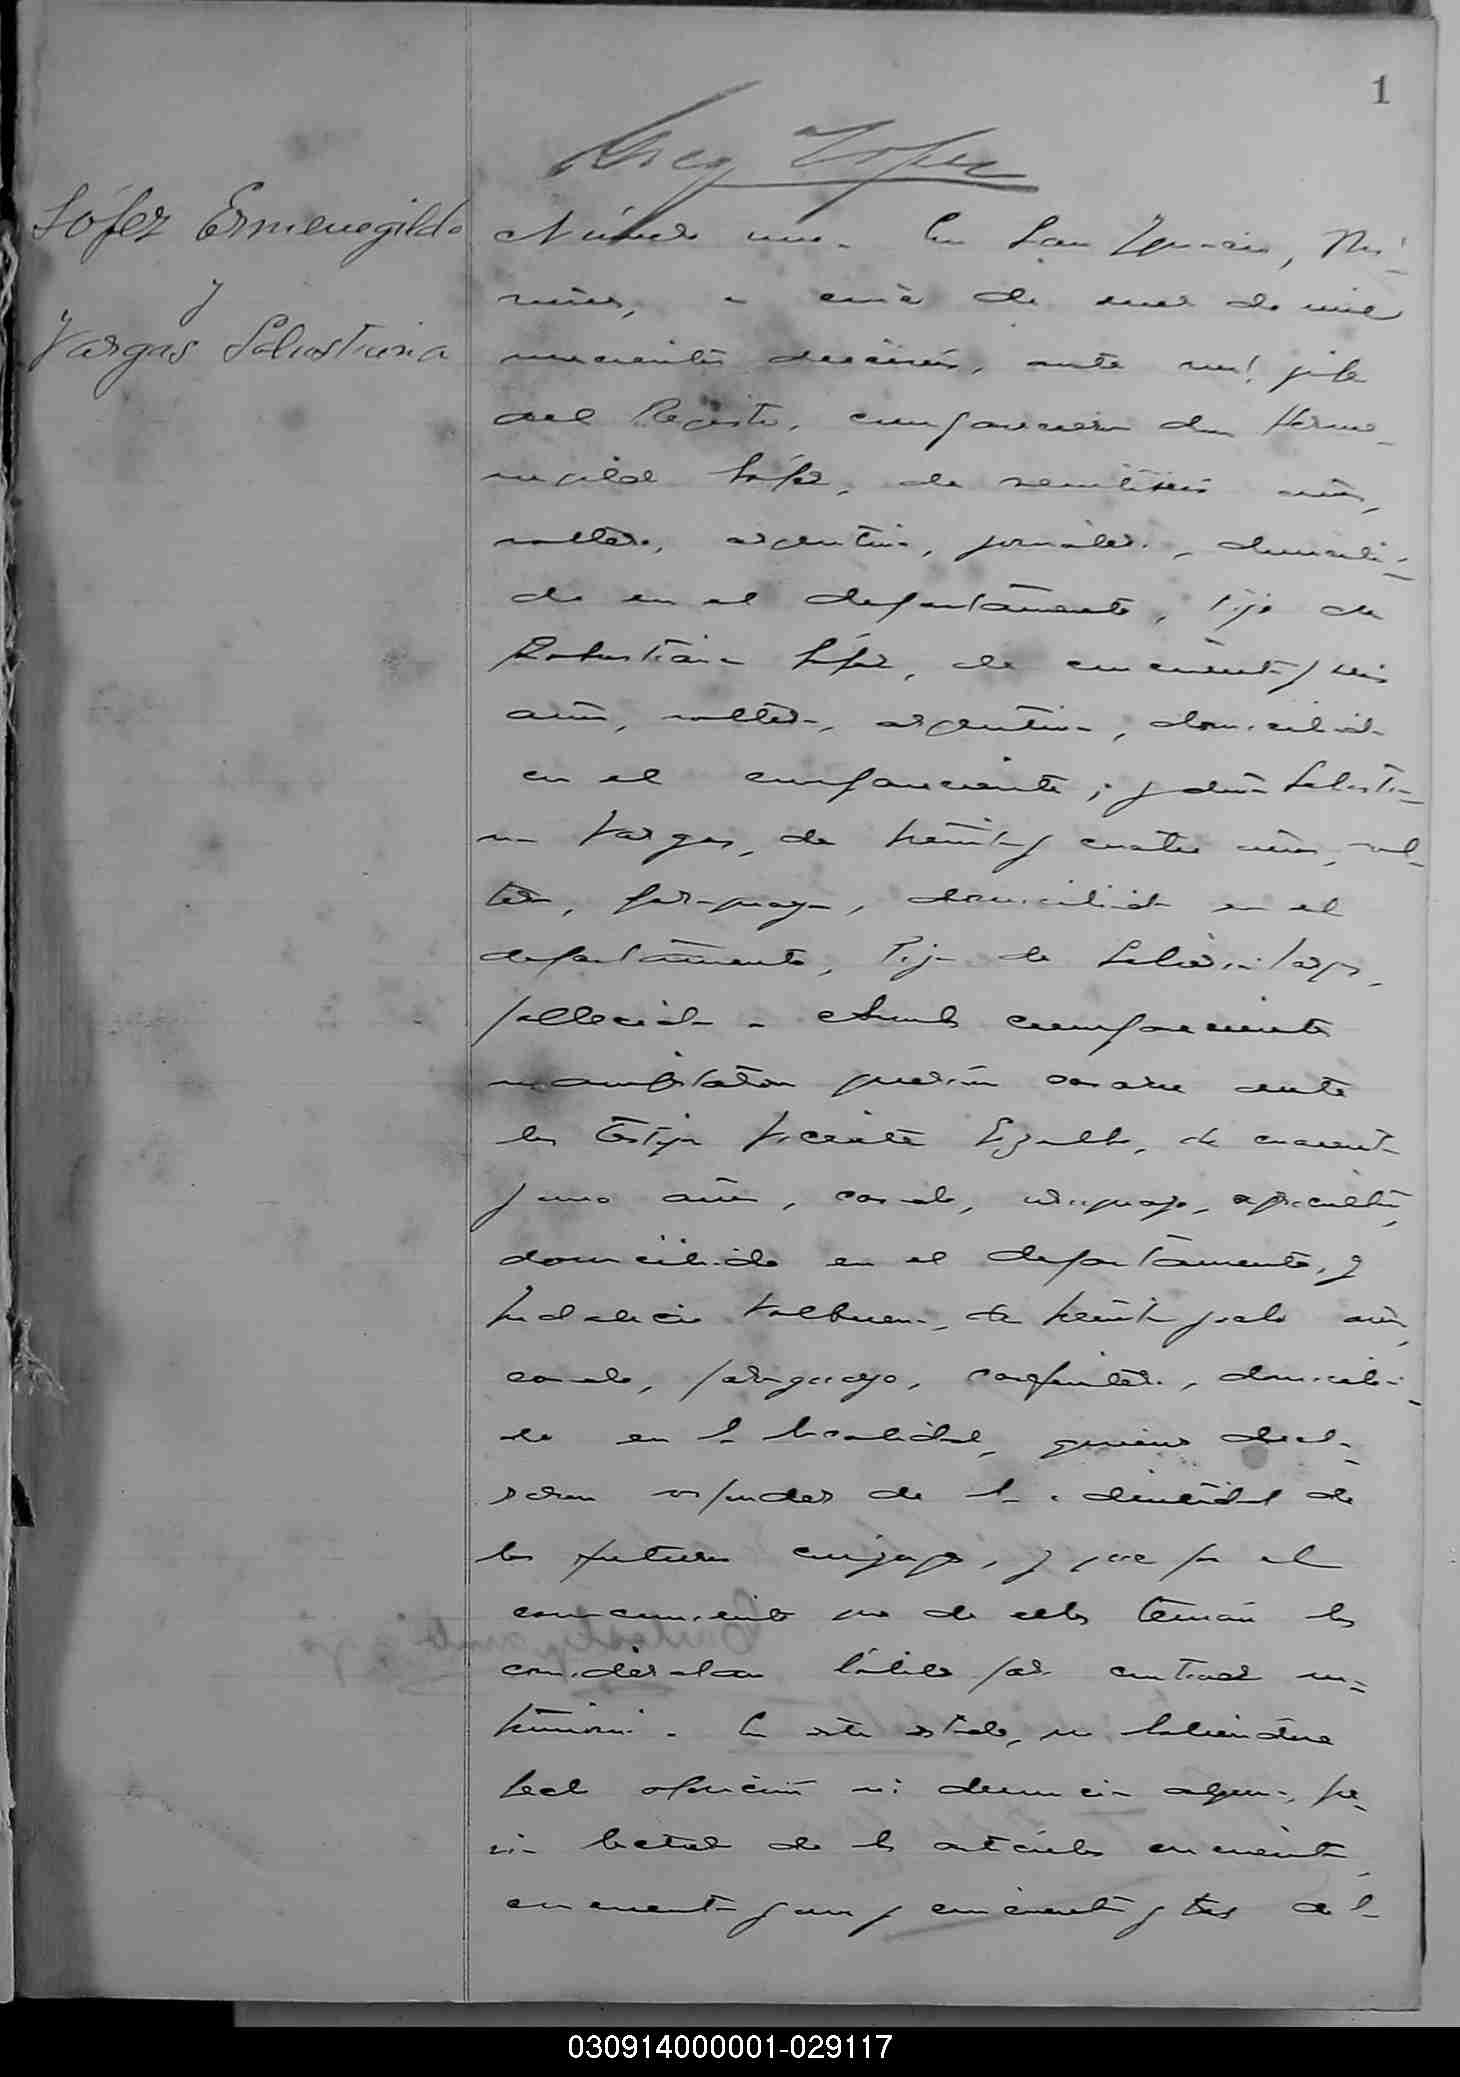 1
Lopez
López Ermenegildo
y
Vargas Salustiana
Número uno. En San Ignacio, Mi-
siones, a cinco de enero de mil
novecientos dieciseis, ante mí, jefe
del Registro, comparecieron don Herme-
negildo López, de veintiseis años,
soltero, argentino, jornalero, domicilia-
do en el departamento, hijo de
Robustiana López, de cincuenta y seis
años, soltera, argentina, domiciliada
en el compareciente; y doña Salustia-
na Vargas, de treinta y cuatro años, sol-
tera, paraguaya, domiciliada en el
departamento, hija de Vargas,
fallecida. Ambos comparecientes
manifestaron querían casarse ante
los testigos Vicente de cuarenta
y uno años, casado, uruguayo, agricultor,
domiciliado en el departamento, y
Indalecio Valbuena, de treinta y ocho años,
casado, paraguayo, carpintero, domicilia-
do en la localidad, quienes decla-
raron responder de la identidad de
los futuros cónyuges, y que por el
conocimiento que de ellos tenían los
consideraban hábiles para contraer ma-
trimonio. En este estado, no habiéndose
hecho oposición ni denuncia alguna, pre-
via lectura de los artículos cincuenta,
cincuenta y uno y cincuenta y tres de la
030914000001-029117